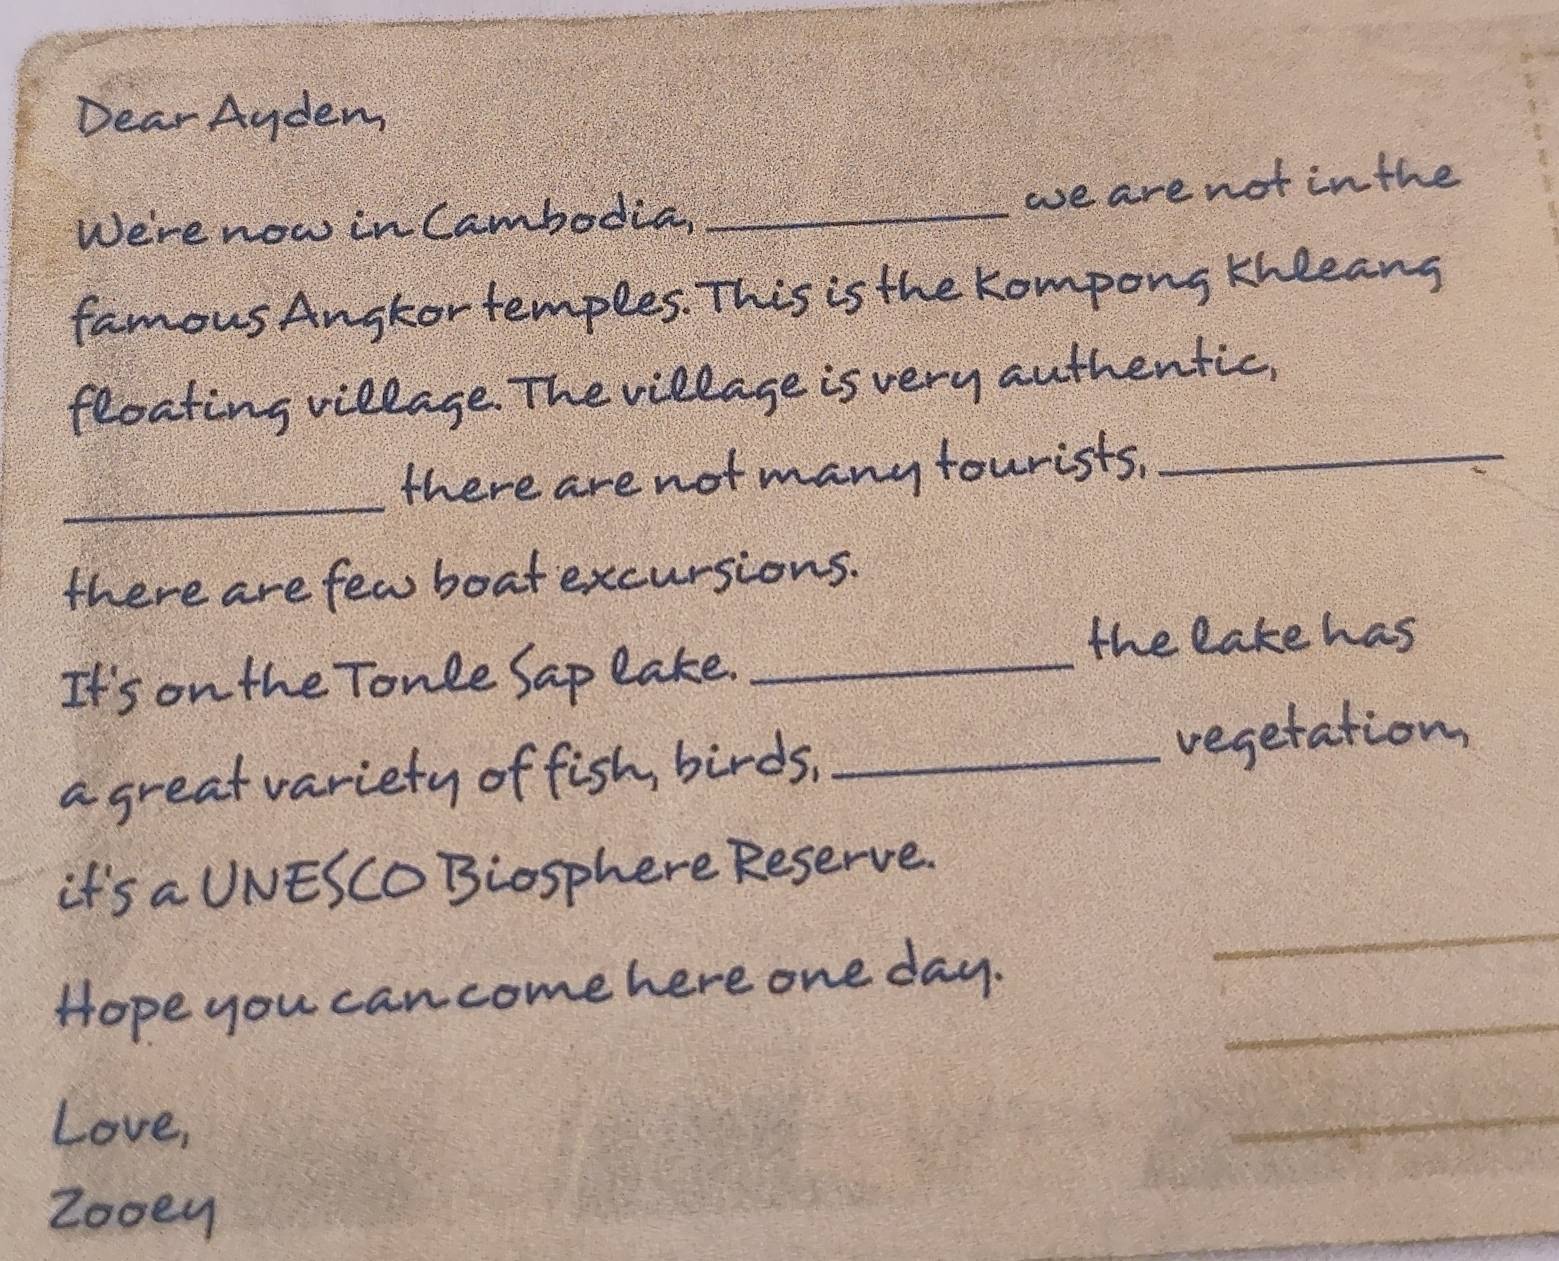 Dear Ayden,
We're now in Cambodia, __________ we are not in the
famous Angkor temples. This is the Kompong Khleang
floating village. The village is very authentic,
__________ there are not many tourists, __________
there are few boat excursions.
It's on the Tonle Sap lake. __________ the lake has
a great variety of fish, birds, __________ vegetation,
it's a UNESCO Biosphere Reserve.
Hope you can come here one day.
Love,
Zooey